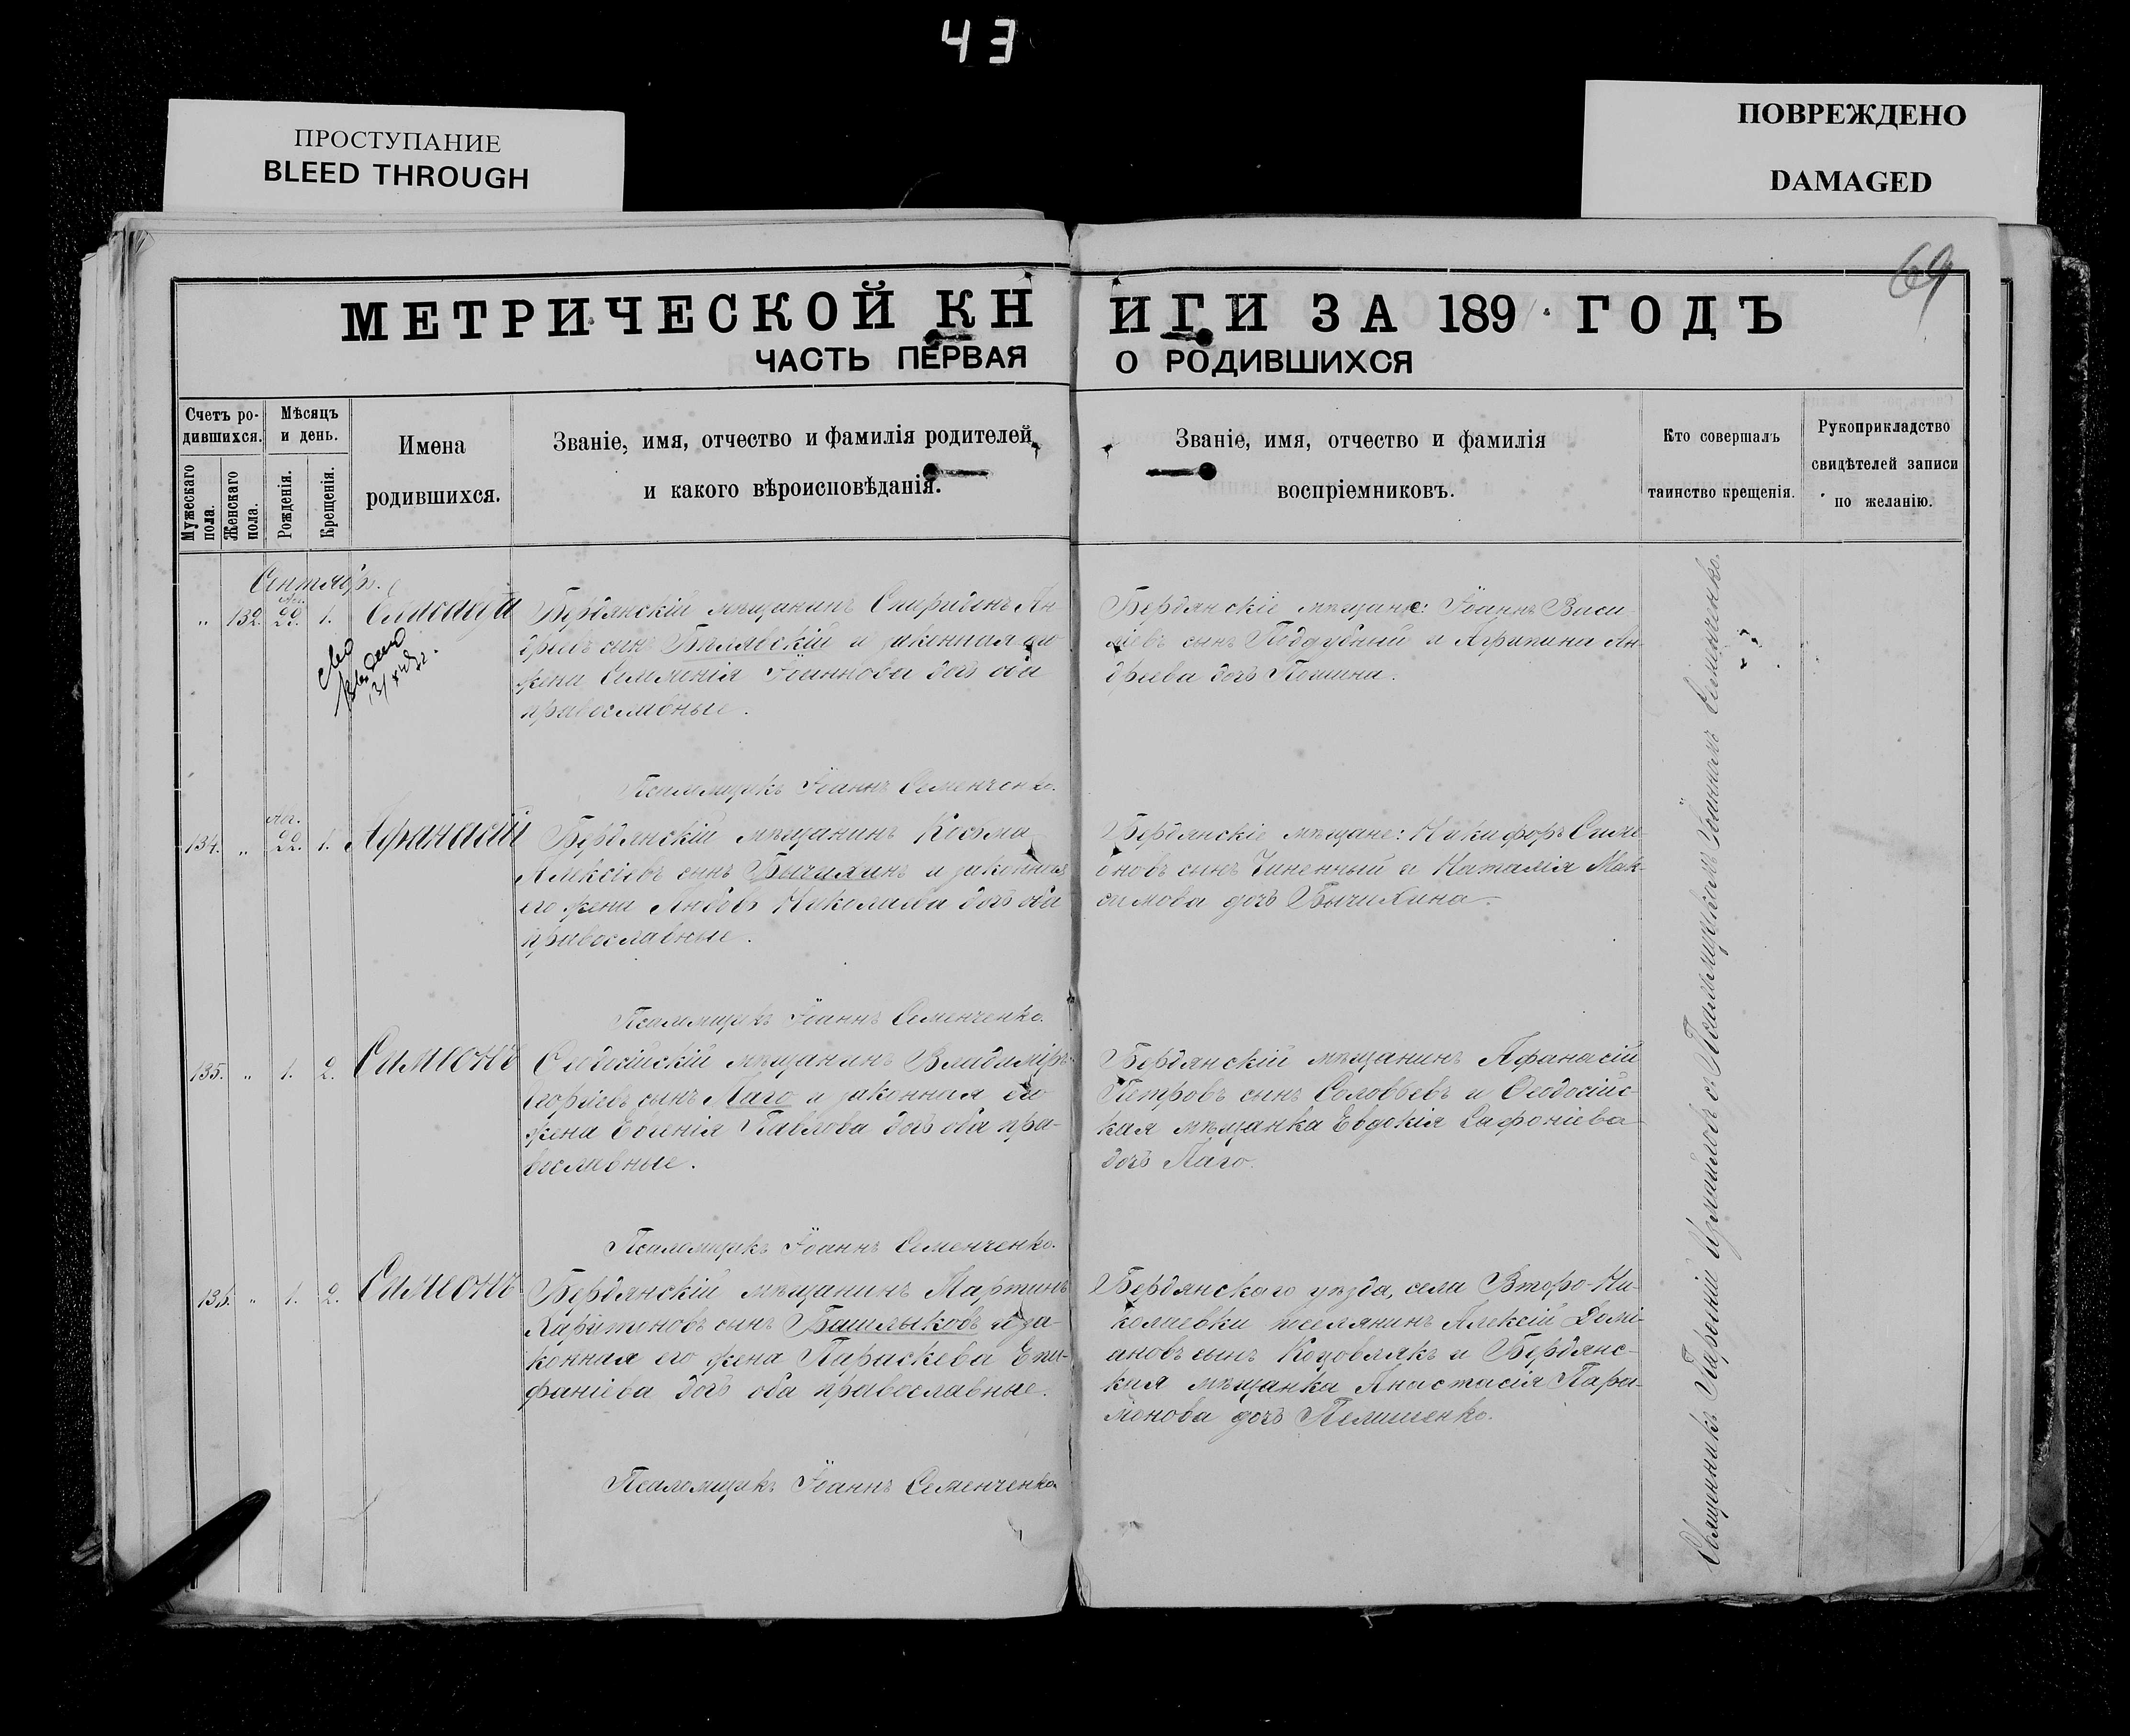 43
ПРОСТУПАНИЕ
BLEED THROUGH
ПОВРЕЖДЕНО
DAMAGED
69
МЕТРИЧЕСКОЙ КНИГИ ЗА 189 ГОДЪ
ЧАСТЬ ПЕРВАЯ О РОДИВШИХСЯ
Счетъ ро-
дившихся.
Мужескаго пола.
Женскаго пола.
Мѣсяцъ
и день.
Рожденія.
Крещенія.
Имена
родившихся.
Званіе, имя, отчество и фамилія родителей,
и какого вѣроисповѣданія.
Званіе, имя, отчество и фамилія
воспріемниковъ.
Кто совершалъ
таинство крещенія.
Рукоприкладство
свидѣтелей записи
по желанію.
Сентябрь.
" 132. Авг. 29. 1. Елисавета
Бердянскій мѣщанинъ Спиридонъ Ан-
дреевъ сынъ Бѣлявскій и законная его
жена Іоаннова дочь оба
православные.
Псаломщикъ Іоаннъ Семенченко.
Бердянскіе мѣщане: Іоаннъ Васи-
ліевъ сынъ Поддубный и Агрипина Ан-
дреева дочь
134. " Авг. 22. 1. Афанасій
Бердянскій мѣщанинъ Косма
Алексіевъ сынъ Бычихинъ и законная
его жена Любовь Николаева дочь оба
православные.
Псаломщикъ Іоаннъ Семенченко.
Бердянскіе мѣщане: Никифоръ Симе-
оновъ сынъ Чиненный и Наталія Мак-
симова дочь Бычихина.
135. " 1. 2. Симеонъ
Ѳеодосійскій мѣщанинъ Владиміръ
Георгіевъ сынъ Лаго и законная его
жена Евгенія Павлова дочь оба пра-
вославные.
Псаломщикъ Іоаннъ Семенченко.
Бердянскій мѣщанинъ Афанасій
Петровъ сынъ Соловьевъ и Ѳеодосійс-
кая мѣщанка Евдокія Сафоніева
дочь Лаго.
136. " 1. 2. Симеонъ
Бердянскій мѣщанинъ Мартинъ
Харитоновъ сынъ Башлыковъ и за-
конная его жена Параскева Епи-
фаніева дочь оба православные.
Псаломщикъ Іоаннъ Семенченко
Бердянскаго уѣзда, села Второ-Ни-
колаевки поселянинъ Алексій Домі-
ановъ сынъ Коцовлякъ и Бердянс-
кая мѣщанка Анастасія Пара-
монова дочь
Священникъ Парѳеній съ Псаломщикомъ Іоанномъ Семенченко.